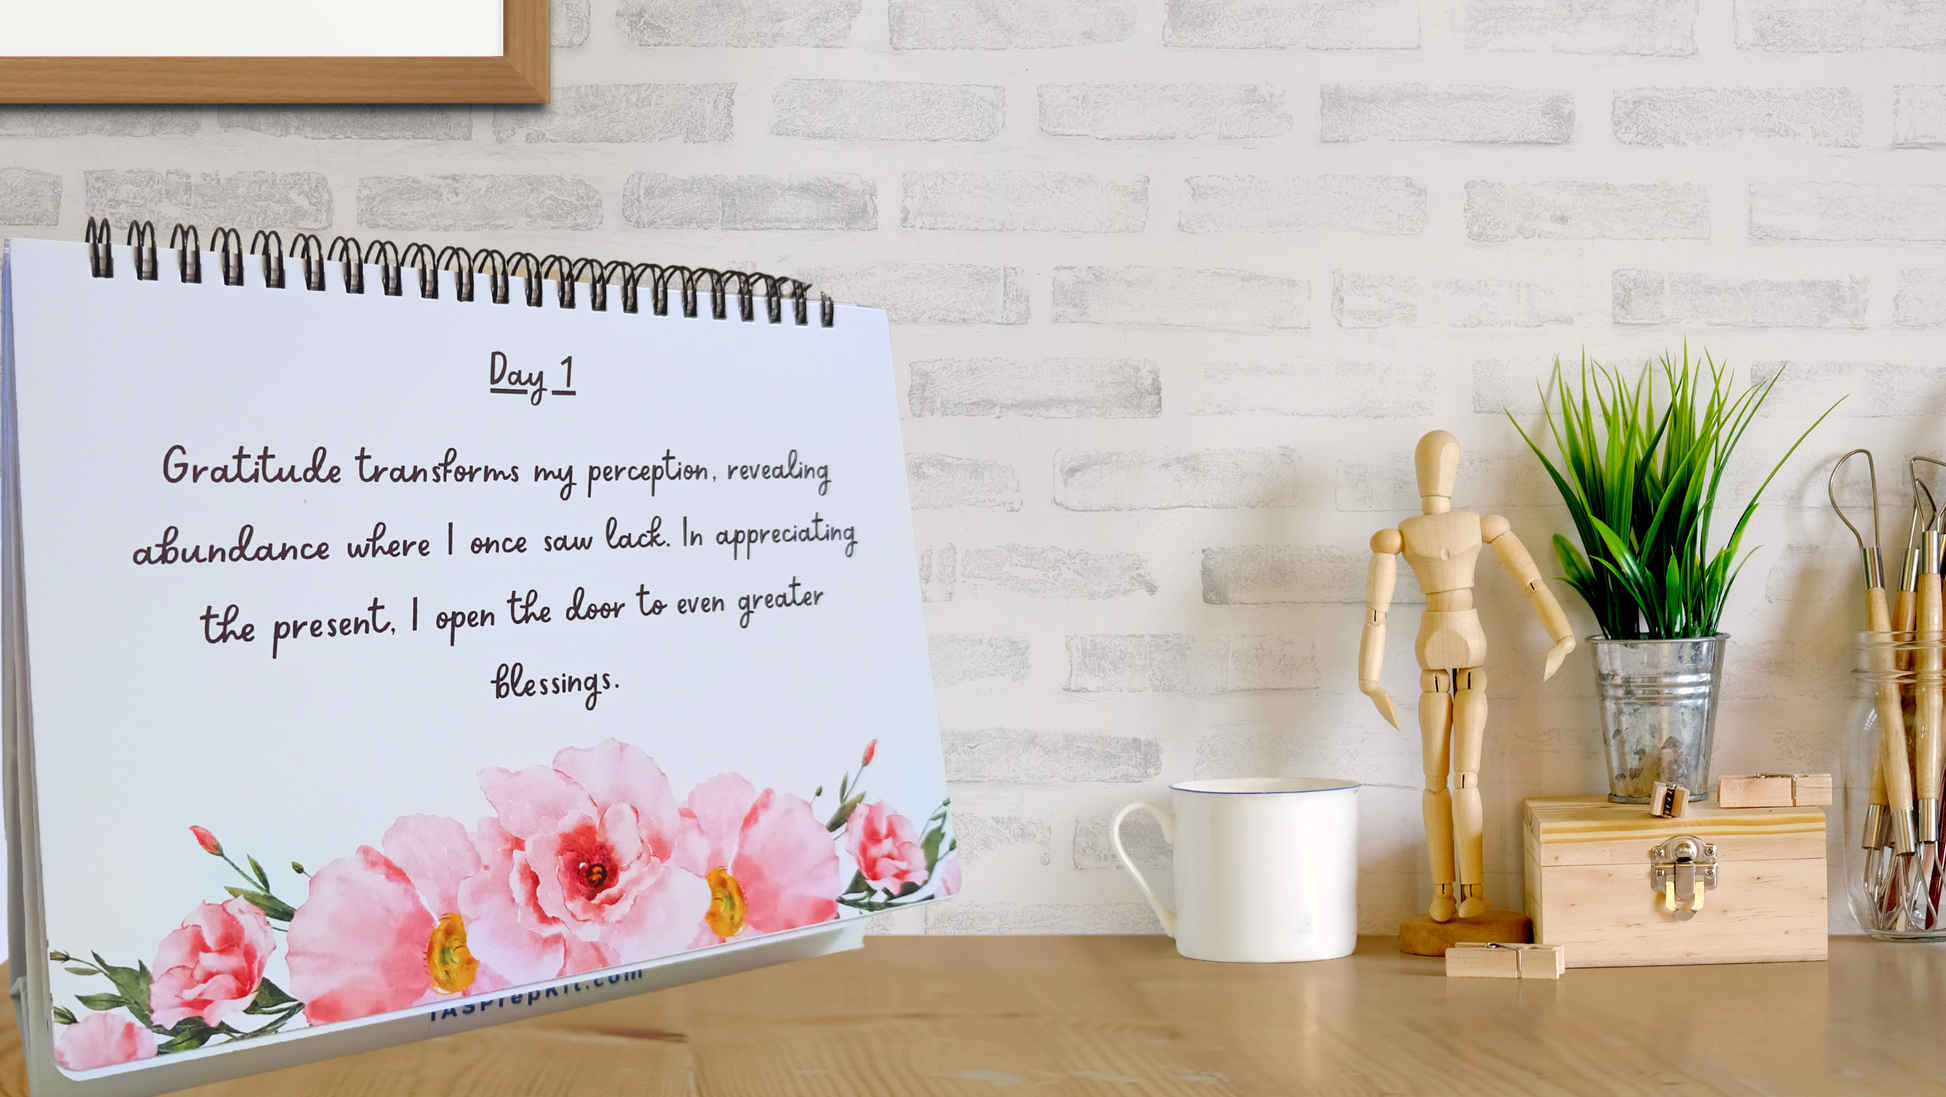 Day 1
Gratitude transforms my perception, revealing
abundance where I once saw lack. In appreciating
the present, I open the door to even greater
blessings.
IASPrepKit.com